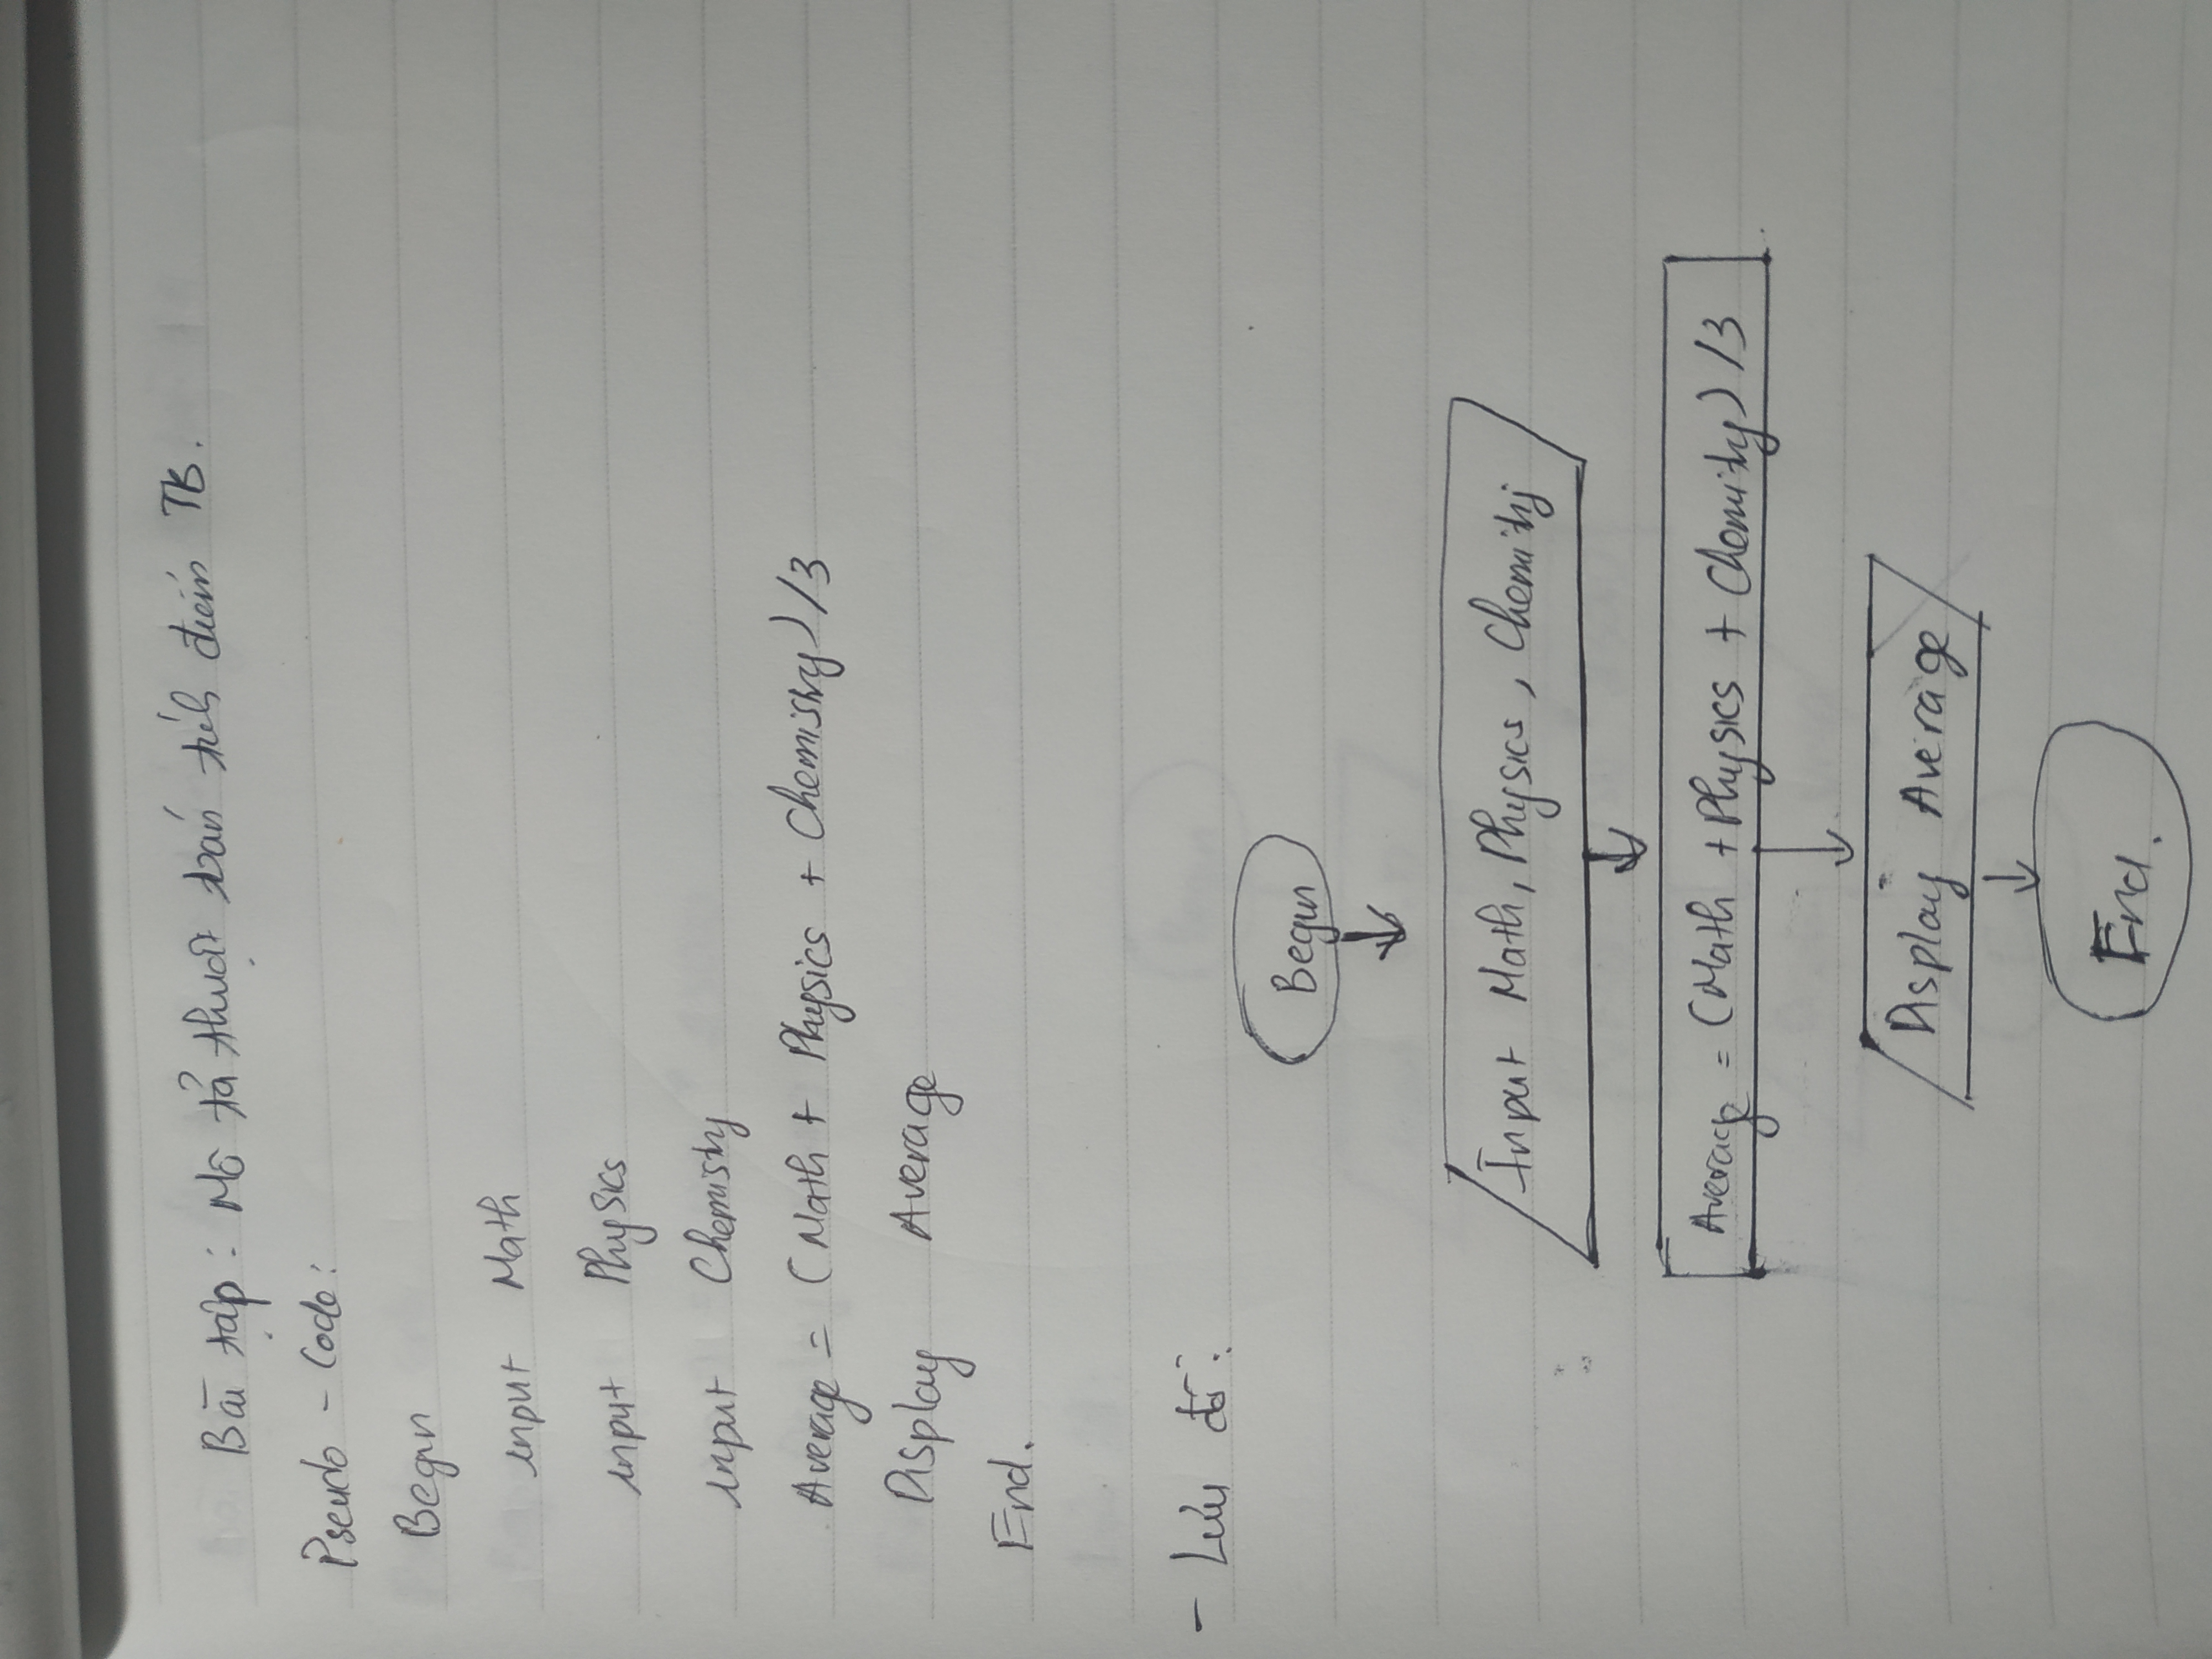 Bài tập: Mô tả thuật toán tính điểm TB.
Pseudo - Code:
Begin
input Math
input Physics
input Chemistry
Average = (Math + Physics + Chemistry) /3
Display Average
End.
- Lưu đồ:
Begin
Input Math, Physics, Chemitry
Average = (Math + Physics + Chemitry) /3
Display Average
End.